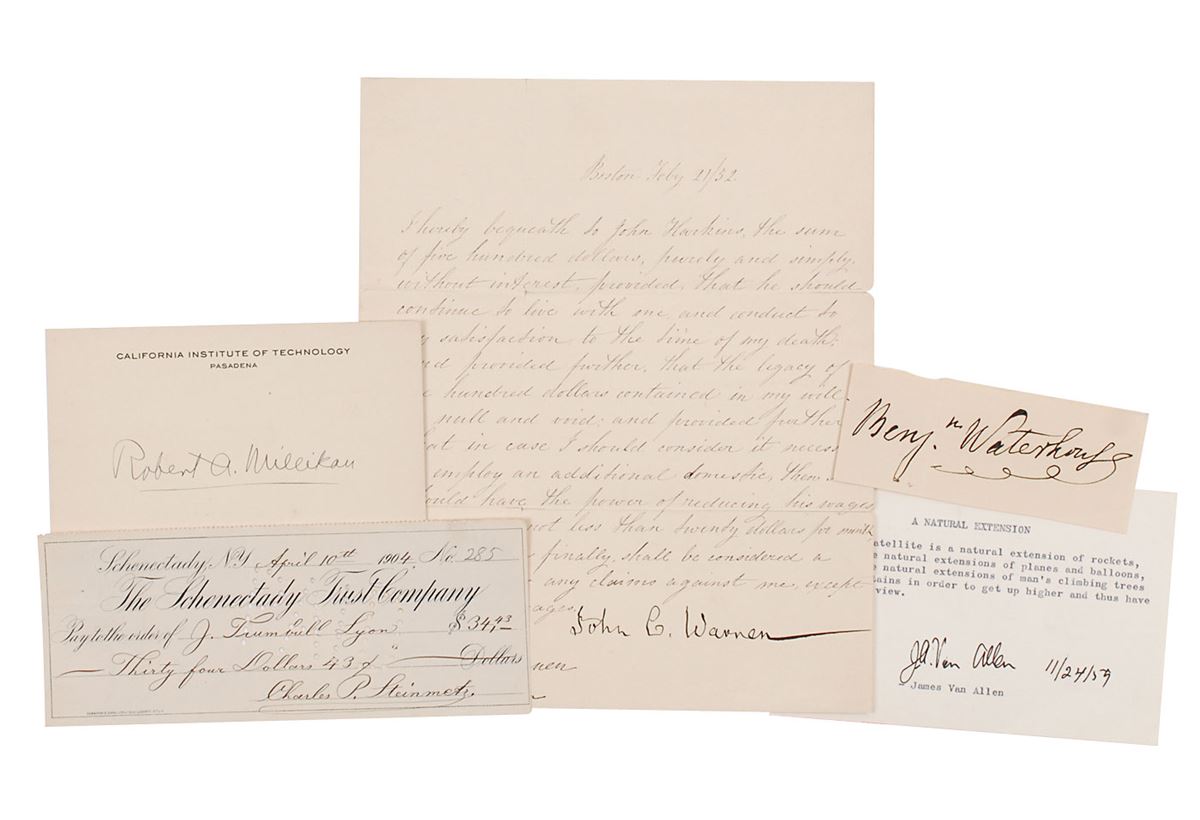 Boston Feby 21/52
I hereby bequeath to John Harkins, the sum
of five hundred dollars, purely and simply,
without interest, provided, that he should
continue to live with me, and conduct to
satisfaction to the time of my death;
provided further, that the legacy of
hundred dollars contained in my will
null and void; and provided further
in case I should consider it
employ an additional domestic, then
have the power of reducing his wages
not less than twenty dollars per month
finally shall be considered a
any claims against me, except
wages.
John C. Warren
CALIFORNIA INSTITUTE OF TECHNOLOGY
PASADENA
Robert A. Millikan
Schenectady, N.Y. April 10th 1904 No. 285
The Schenectady Trust Company
Pay to the order of J. Trumbull Lyon $34.43
Thirty four Dollars 43 ¢ Dollars
Charles P. Steinmetz.
Benj.n Waterhouse
A NATURAL EXTENSION
satellite is a natural extension of rockets,
natural extensions of planes and balloons,
natural extensions of man's climbing trees
in order to get up higher and thus have
view.
J.A. Van Allen 11/24/59
- James Van Allen